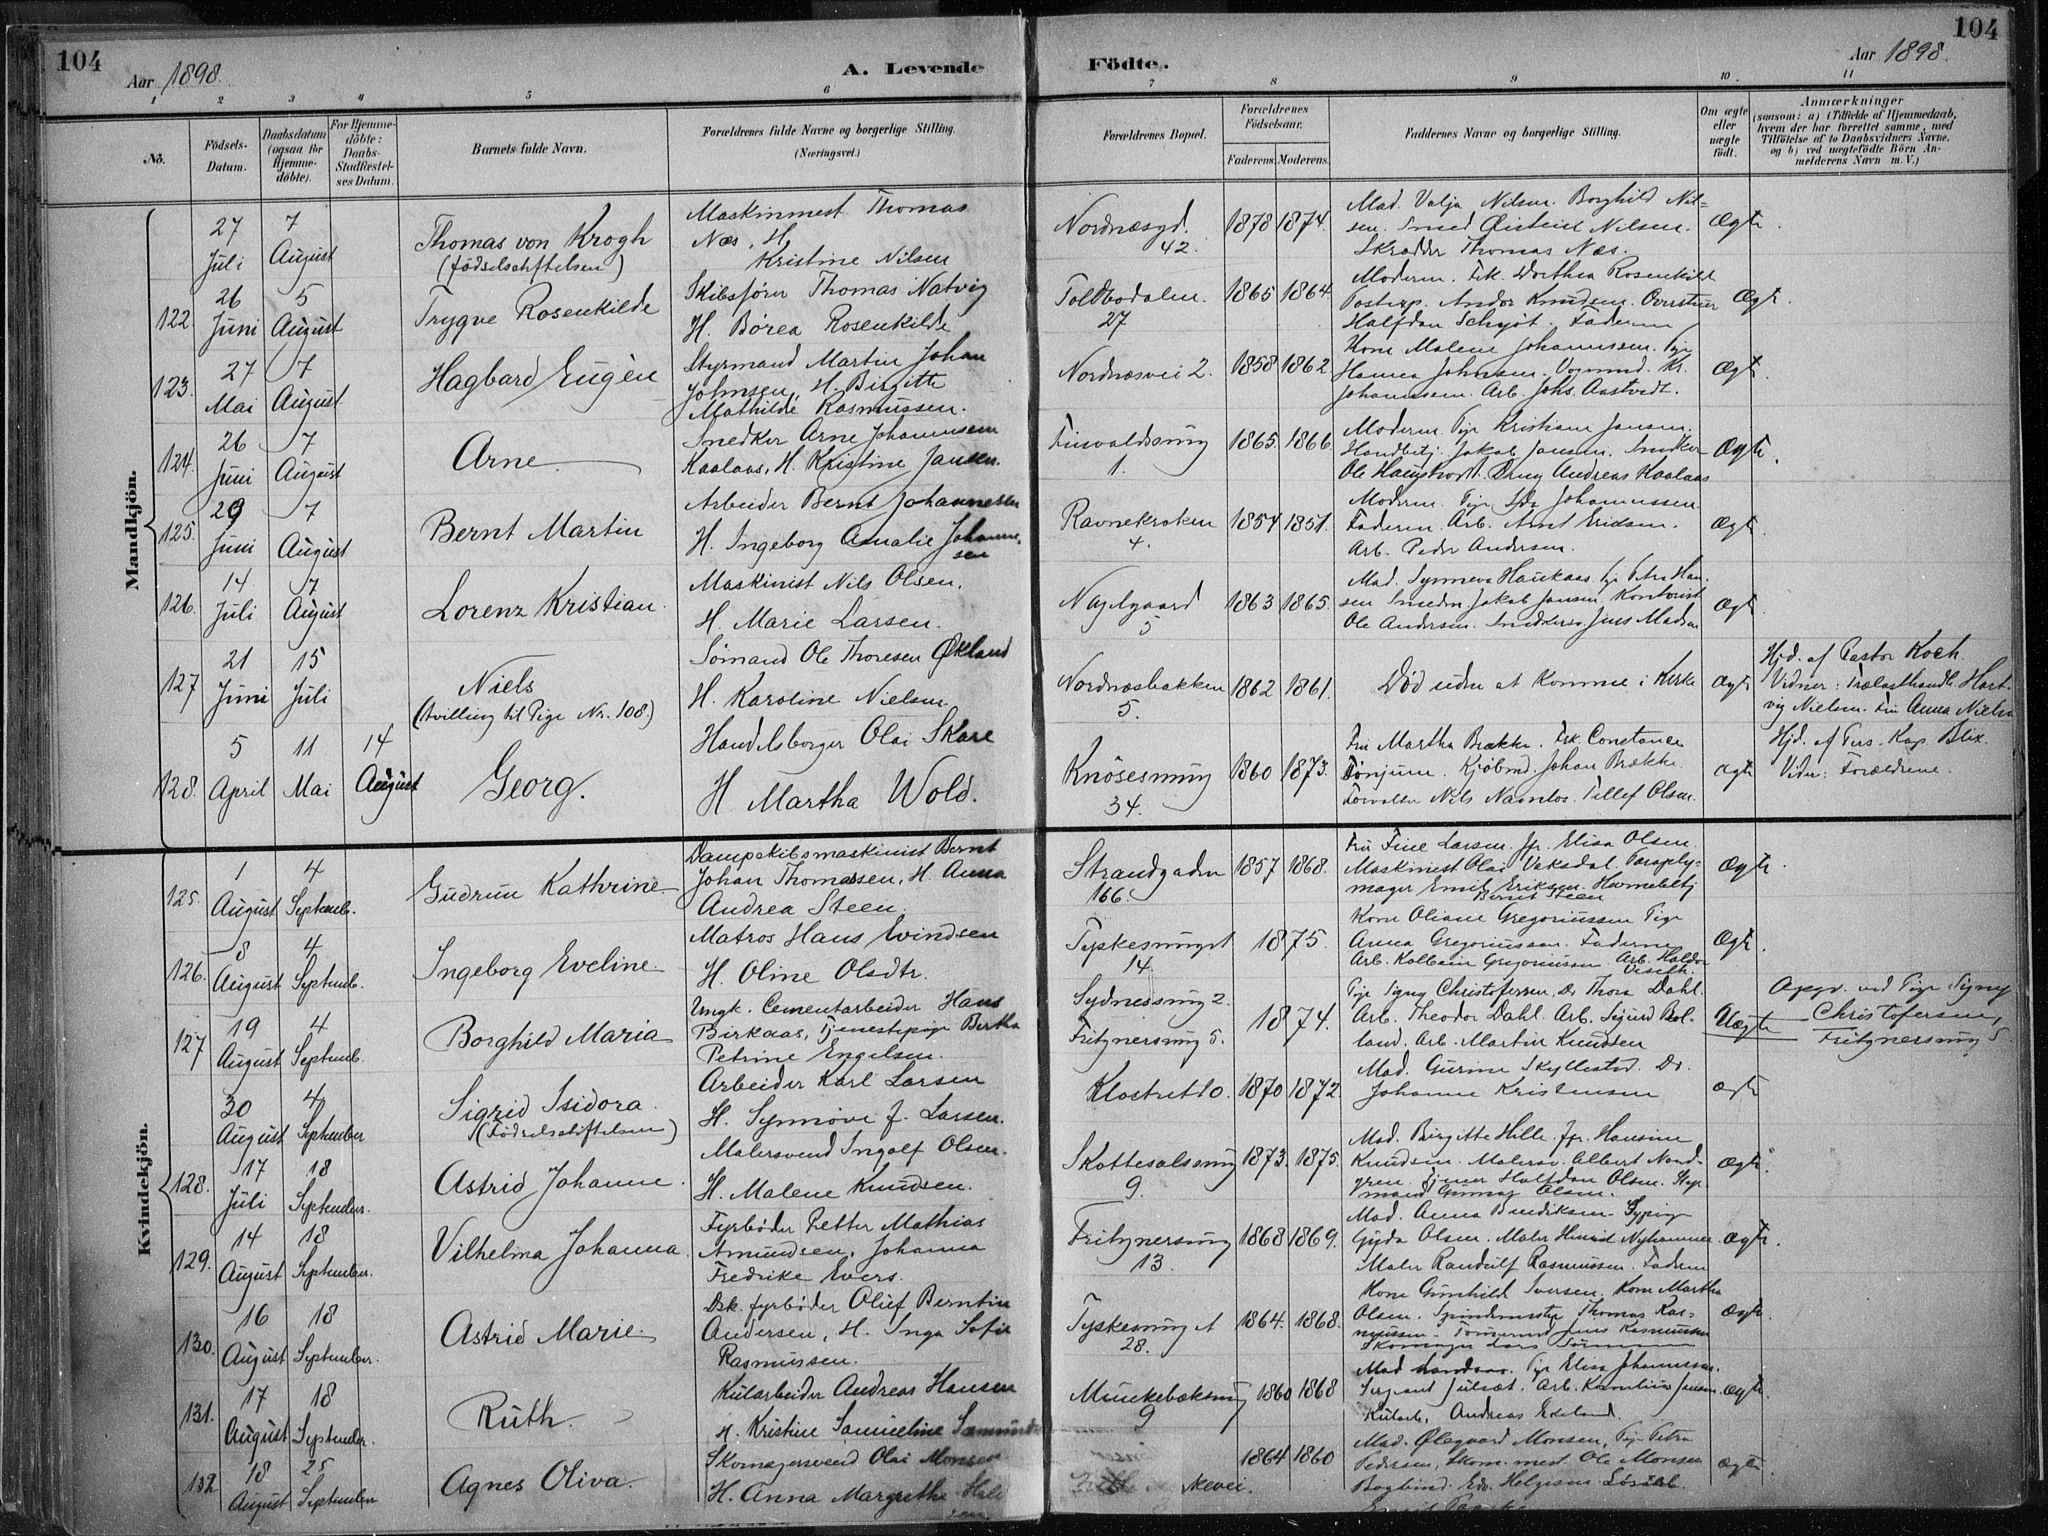 104
Aar 1898.
A. Levende
Födte.
Aar 1898.
104
1 2 3 4 5 6 7 8 9 10. 11
No.
Födsels-Datum.
Daabsdatum (ogsaa for Hjemme-döbte).
For Hjemme-döbte: Daabs-Stadfæstelses Datum.
Barnets fulde Navn.
Forældrenes fulde Navne og borgerlige Stilling. (Næringsvei.)
Forældrenes Bopæl.
Forældrenes Födselsaar.
Faderens. Moderens.
Faddernes Navne og borgerlige Stilling.
Om ægte eller uægte födt.
Anmærkninger
(saasom: a) i Tilfælde af Hjemmedaab,
hvem der har forrettet samme, med
Tilföielse af to Daabsvidners Navne,
og b) ved uægtefödte Börn An-
melderens Navn m. V.)
Mandkjön.
27 Juli 7 August
Thomas von Krogh
(Födselsstiftelsen)
Maskinmest Thomas
Næs, H.
Kristine Nilsen
Nordnæsgd. 42.
1878 1874.
Mad. Valja Nilsen. Borghild Nil-
sen. Smed Øistein Nilsen.
Skrædder Thomas Næs.
Ægte
122. 26 Juni 5 August
Trygve Rosenkilde
Skibsfører Thomas Natvig
H. Børea Rosenkilde
Toldbodalm. 27
1865 1864.
Moderen. Frk. Dorthea Rosenkilde
Postexp. Andor Knudsen.
Halfdan Schjøt. Faderen
Ægte
123. 27 Mai 7 August
Hagbard Eugèn
Styrmand Martin Johan
Johnsen, H. Birgitte
Mathilde Rasmussen.
Nordnæsvei 2.
1858 1862
Kone Malene Johannssen. Pige
Hanna Johnsen. Vognmd. Kr.
Johannssen. Arb. Johs. Aastvedt.
Ægte
124. 26 Juni 7 August
Arne
Snedker Arne Johannsen
Kaalaas, H. Kristine Jansen.
1.
1865. 1866.
Moderen. Pige Kristiane Jansen.
Handbetj. Jakob Jansen. Snedker
Andreas Kaalaas
Ægte.
125. 29 Juni 7 August
Bernt Martin
Arbeider Bernt Johannesen
H. Ingeborg Amalie Johanne-
sen
Ravnekroken 4.
1854 1851.
Moderen. Pige Ida Johannssen
Faderen. Arb. Arnt Eriksen.
Arb. Peder Andersen.
Ægte
126. 14 Juli 7 August
Lorenz Kristian.
Maskinist Nils Olsen.
H. Marie Larsen.
Nagelgaard 5
1863 1865.
Mad. Synneva Haukaas, Pige Petra Han-
sen Smedm. Jakob Jansen. Kontorist
Ole Andersen. Snedkersv. Jens Madsen
Ægte
127 21 Juni 15 Juli
Niels
(Tvilling til Pige Nr. 108.)
Sømand Ole Thoresen Økland
H. Karoline Nielsen.
Nordnæsbakken 5.
1862 1861.
Død uden at komme i Kirke
Ægte
Hjd. af Pastor Koch.
Vidner: Trælasthandl. Hart-
vig Nielsen. Fru Anna Nielsen
128. 5 April 11 Mai 14 August
Georg.
Handelsborger Olai Skare
H. Martha Wold.
Knösesmug 34.
1860 1873.
Fru Martha Brække. Frk. Constance
Tønjum. Kjöbmd. Johan Brække.
Forvalter Nils Navnlos. Tellef Olsen.
ægte
Hjd. af Pers. Kap. Blix.
Vidn: Forældrene.
Kvindekjön.
125. 1 August 4 Septemb.
Gudrun Kathrine
Dampskibsmaskinist Bernt
Johan Thomassen, H. Anna
Andrea Steen.
Strandgaden 166.
1857 1868.
Fru Fine Larsen. Jfr. Elisa Olsen.
Maskinist Olai Vaksdal. Paraply-
mager Emil Eriksen.
Bernt Steen
Ægte
126. 8 August 4 Septemb.
Ingeborg Eveline.
Matros Hans Evindsen
H. Oline Olsdtr.
Tyskesmuget 14.
1875.
Kone Oliane Gregoriussen Pige
Anna Gregoriussen. Faderen
Arb. Kolbein Gregoriussen. Arb. Haldor
Ægte.
127 19 August 4 Septemb.
Borghild Maria
Ungk. Cementarbeider Hans
Birkaas, Tjenestepige Bertha
Petrine Engelsen.
Sydnessmug 2.
Fritznersmug 5.
1874.
Pige Signy Christofersen. Do Thora Dahl.
Arb. Theodor Dahl. Arb. Sigurd Bol-
land. Arb. Martin Knudsen
Uægte
Opgv. ved Pige Signy
Christofersen,
Fritznersmug 5.
30 August 4 September
Sigrid Isidora.
(Födselsstiftelsen)
Arbeider Karl Larsen
H. Synnøve J. Larsen.
Klostret 10.
1870 1872.
Mad. Gurine Skyllestad. Do.
Johanne Kristensen
ægte
128. 17 Juli 18 September.
Astrid Johanne.
Malersvend Ingolf Olsen.
H. Malene Knudsen.
Skottesalsmug 9.
1873. 1875.
Mad. Birgitte Hille. Jfr. Hansine
Knudsen. Malersv. Albert Nord-
gren. Halfdan Olsen. Styr-
mand Gunnar Olsen.
Ægte
129. 14 August 18 September.
Vilhelma Johanna.
Fyrbøder Petter Mathias
Amundsen, Johanna
Fredrike Evers.
Fritznersmug 13.
1868 1869.
Mad. Anna Bendiksen. Sypige
Gyda Olsen. Maler Nyhammer.
Maler Randulf Rasmussen. Faderen
Ægte.
130. 16 August 18 September.
Astrid Marie.
Dsk. fyrbøder Oluf Berntin
Andersen, H. Inga Sofie
Rasmussen.
Tyskesmuget 28.
1864. 1868.
Kone Gunhild Iversen. Kone Martha
Olsen. Spindemester Thomas Ras-
mussen. Jens Rasmussen
Skomager Lars
Ægte
131. 17 August 18 September.
Ruth.
Kularbeider Andreas Hansen
H. Kristine Samueline
Munkebæksmug 9
1860 1868
Mad. Pige Elisa Johannssen.
Sergeant Julsæt. Arb. Kornelius Jensen
Kularb. Andreas
Ægte.
132 18 August 25 September
Agnes Oliva.
Skomagersvend Olai Monsen
H. Anna Margrethe
1864 1860
Mad. Ølegaard Monsen. Pige Petra
Pedersen, Skom. mest Ole Monsen
Bogbind. Edv. Helgesen.
ægte